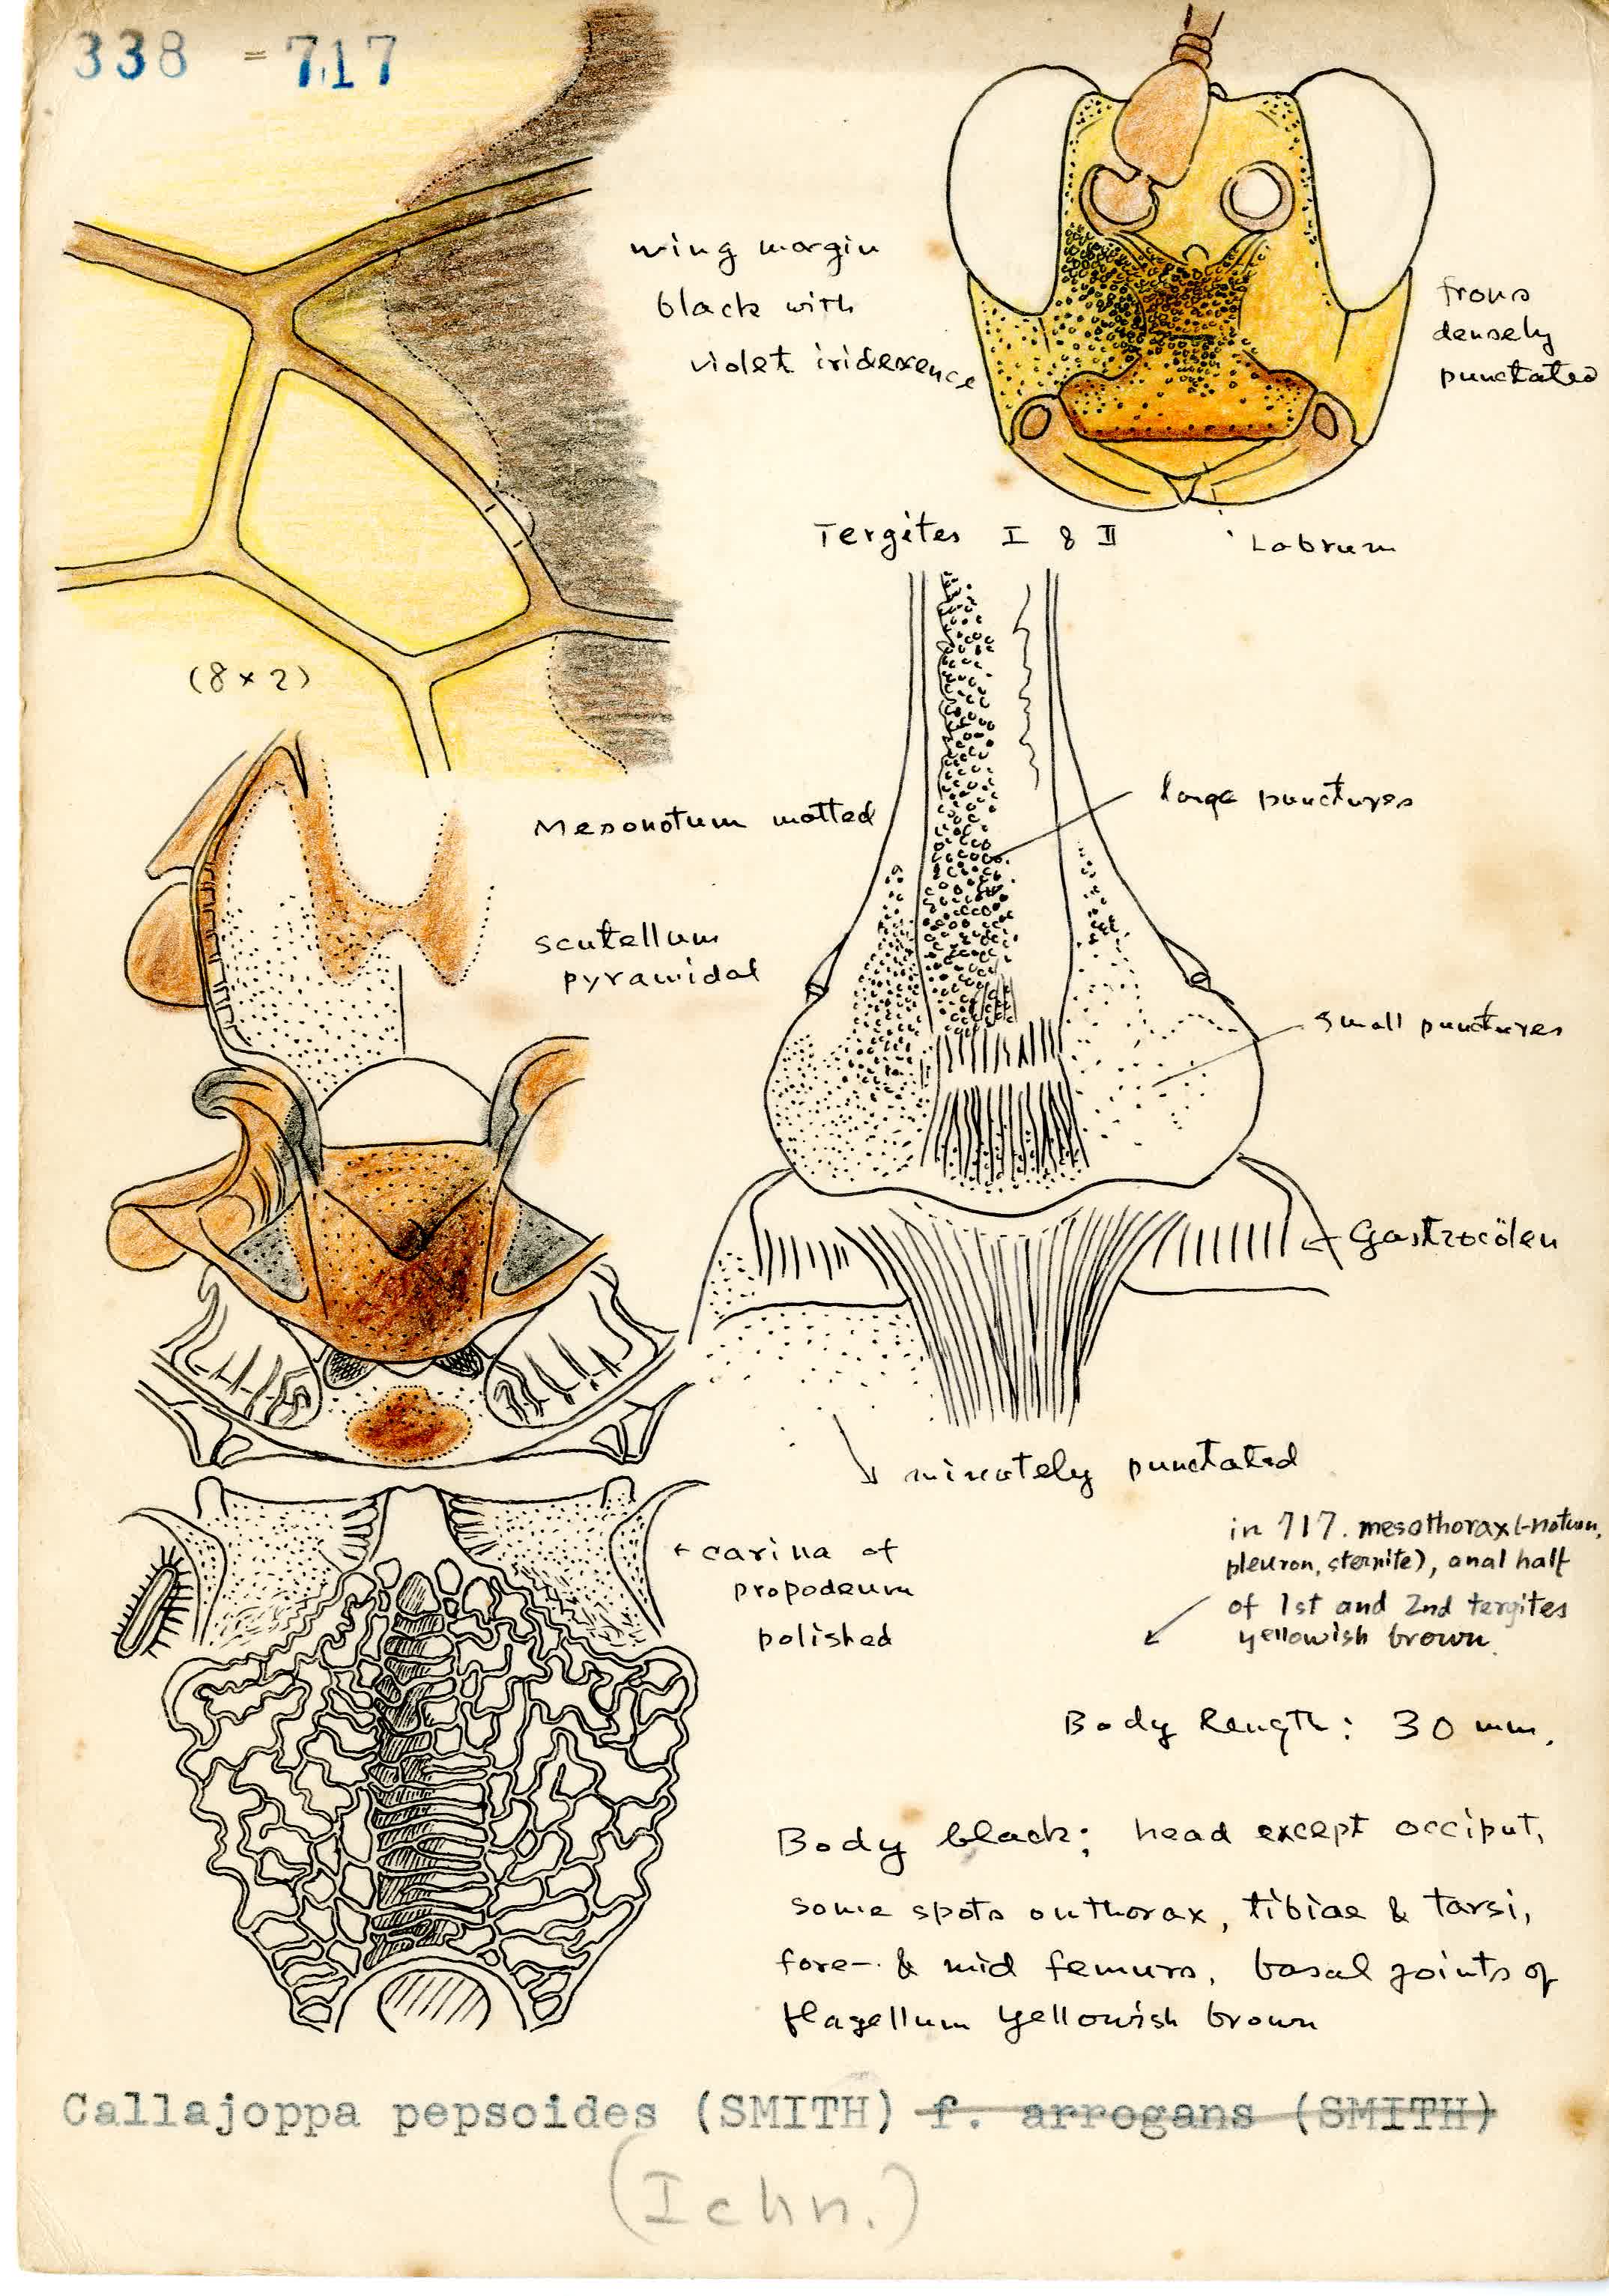 338 = 717
wing margin
black with
violet iridexence
frons
densely
punctated
Labrum
Tergites I & II
(8 × 2)
Mesonotum matted
large punctures
scutellum
pyramidal
small punctures
← Gastrocölen
minutely punctated
← carina of
propodeum
polished
in 717. mesothorax (-notum,
pleuron, sternite), anal half
of 1st and 2nd tergites
yellowish brown.
Body length: 30 mm.
Body black; head except occiput,
some spots on thorax, tibiae & tarsi,
fore- & mid femurs, basal joints of
flagellum yellowish brown
Callajoppa pepsoides (SMITH) f. arrogans (SMITH)
(Ichn.)